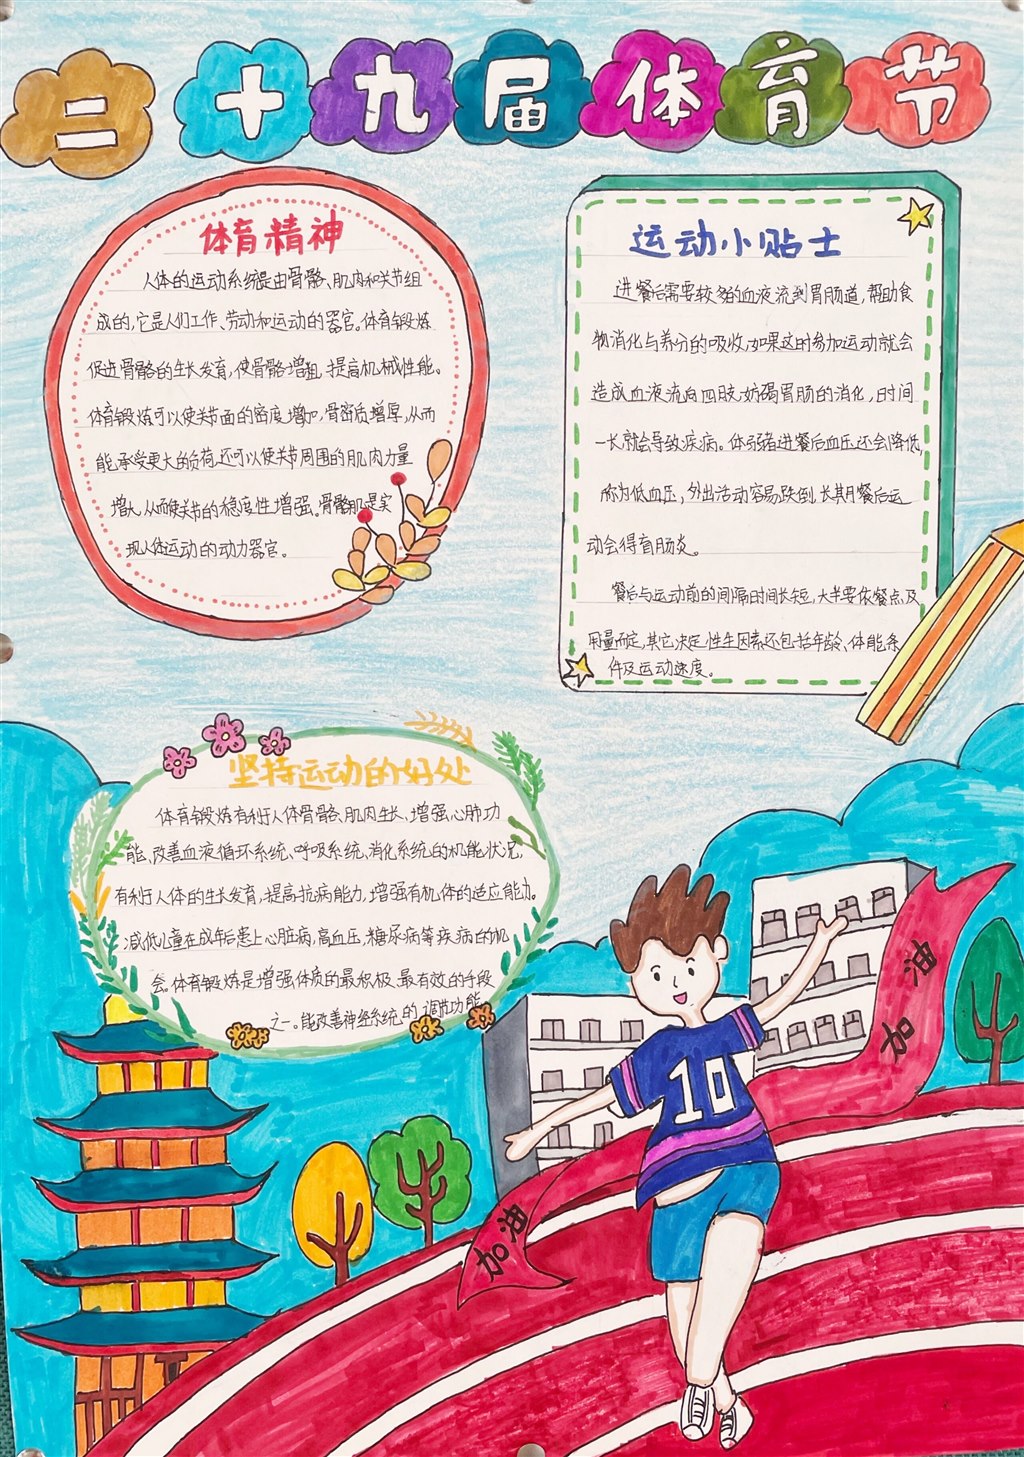 二十九届体育节
体育精神
人体的运动系统是由骨骼、肌肉和关节组
成的,它是人们工作、劳动和运动的器官。体育锻炼
促进骨骼的生长发育,使骨骼增粗,提高机械性能。
体育锻炼可以使关节面的密度增加,骨密质增厚,从而
能承受更大的负荷,还可以使关节周围的肌肉力量
增大,从而使关节的稳度性增强。骨骼肌是实
现人体运动的动力器官。
运动小贴士
进餐后需要较多的血液流到胃肠道,帮助食
物消化与养分的吸收,如果这时参加运动就会
造成血液流向四肢,妨碍胃肠的消化,时间
一长就会导致疾病。体弱者进餐后血压还会降低,
称为低血压,外出活动容易跌倒,长期餐后运
动会得盲肠炎。
餐后与运动前的间隔时间长短,大半要依餐点及
用量而定,其它决定性生因素还包括年龄、体能条
件及运动速度。
坚持运动的好处
体育锻炼有利于人体骨骼、肌肉生长,增强心肺功
能,改善血液循环系统、呼吸系统、消化系统的机能状况,
有利于人体的生长发育,提高抗病能力,增强有机体的适应能力。
减低儿童在成年后患上心脏病,高血压,糖尿病等疾病的机
会。体育锻炼是增强体质的最积极、最有效的手段
之一。能改善神经系统的调节功能
加油
10
加油